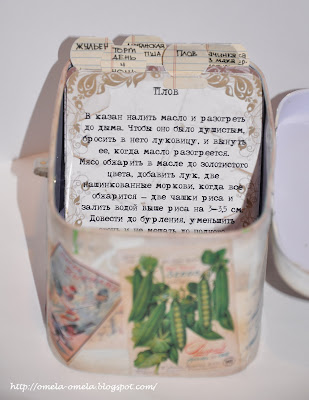 ЖУЛЬЕН
ТОРТ
ДЕНЬ
И
НОЧЬ
ПЛОВ
Плов
В казан налить масло и разогреть
до дыма. Чтобы оно было душистым,
бросить в него луковицу, и вынуть
ее, когда масло разогреется.
Мясо обжарить в масле до золотистого
цвета, добавить лук, две
нашинкованные моркови, когда все
обжарится — две чашки риса и
залить водой выше риса на 3-3,5 см
Довести до бурления, уменьшить
и не мешать до
http://omela-omela.blogspot.com/